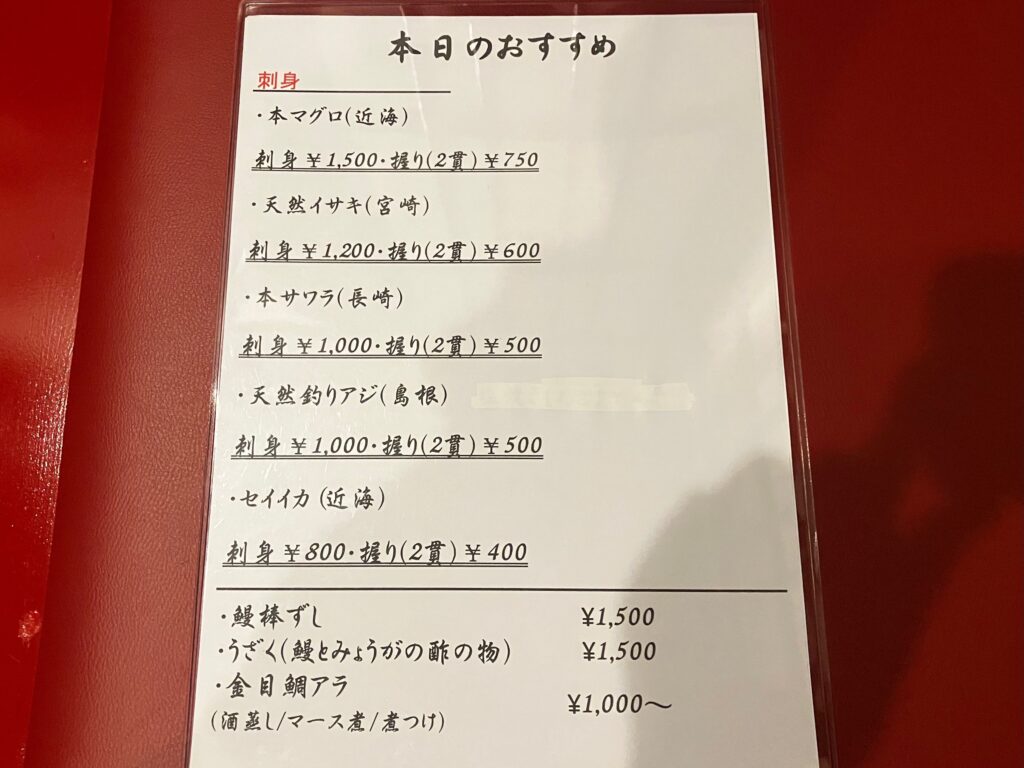 本日のおすすめ
刺身
・本マグロ(近海)
刺身¥1,500・握り(2貫)¥750
・天然イサキ(宮崎)
刺身¥1,200・握り(2貫)¥600
・本サワラ(長崎)
刺身¥1,000・握り(2貫)¥500
・天然釣りアジ(島根)
刺身¥1,000・握り(2貫)¥500
・セイイカ(近海)
刺身¥800・握り(2貫)¥400
・鰻棒ずし ¥1,500
・うざく(鰻とみょうがの酢の物) ¥1,500
・金目鯛アラ ¥1,000～
(酒蒸し/マース煮/煮つけ)